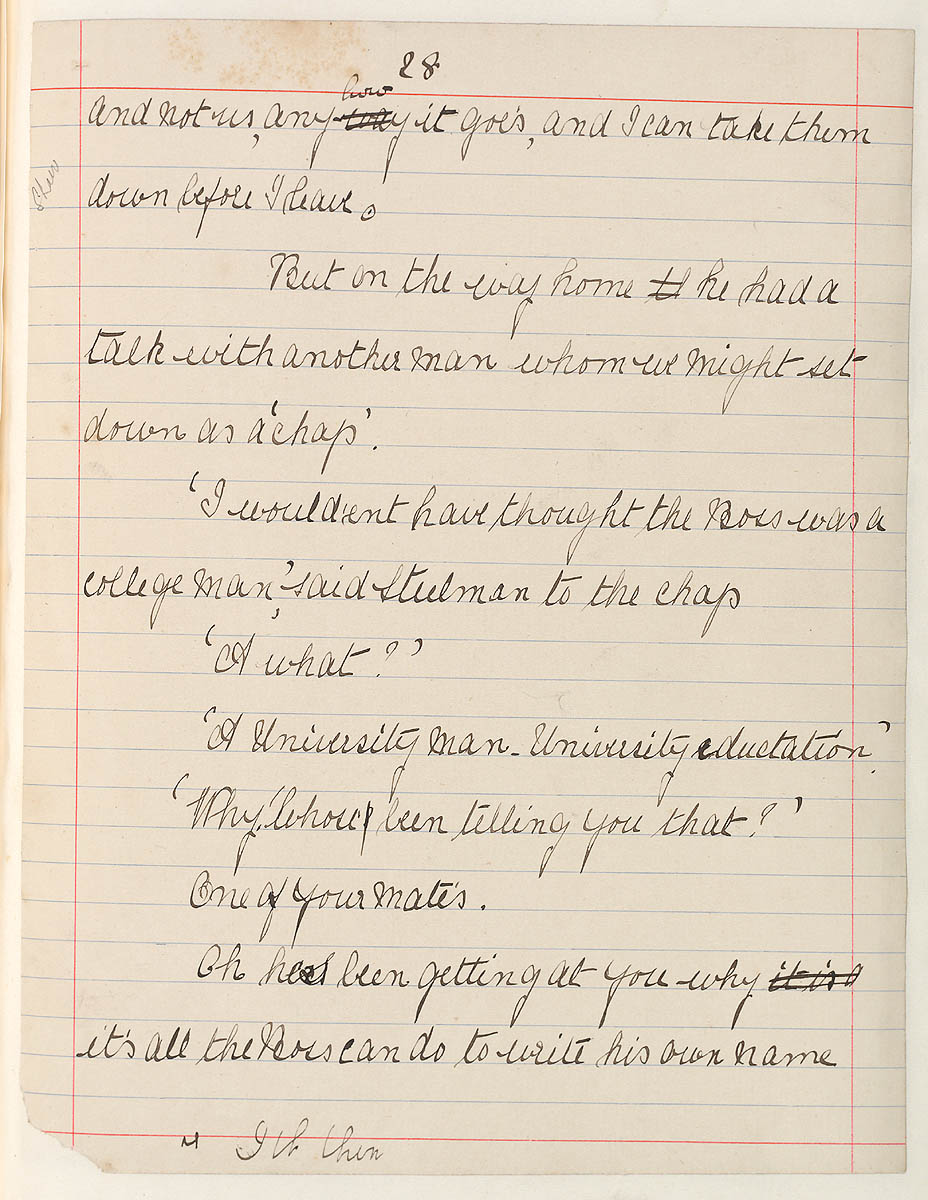 28
how
and not us, any way it goe's, and I can take them
down before I leave.
But on the way home tl he had a
talk with another man whom we might set
down as a 'chap'.
'I wouldent have thought the Boss was a
college man,' said Steelman to the chap
'A what?'
'A University man - University eductation,'
'Why! Whose been telling you that?'
One of your mate's.
Oh he's been getting at you why it is a
it's all the Boss can do to write his own name